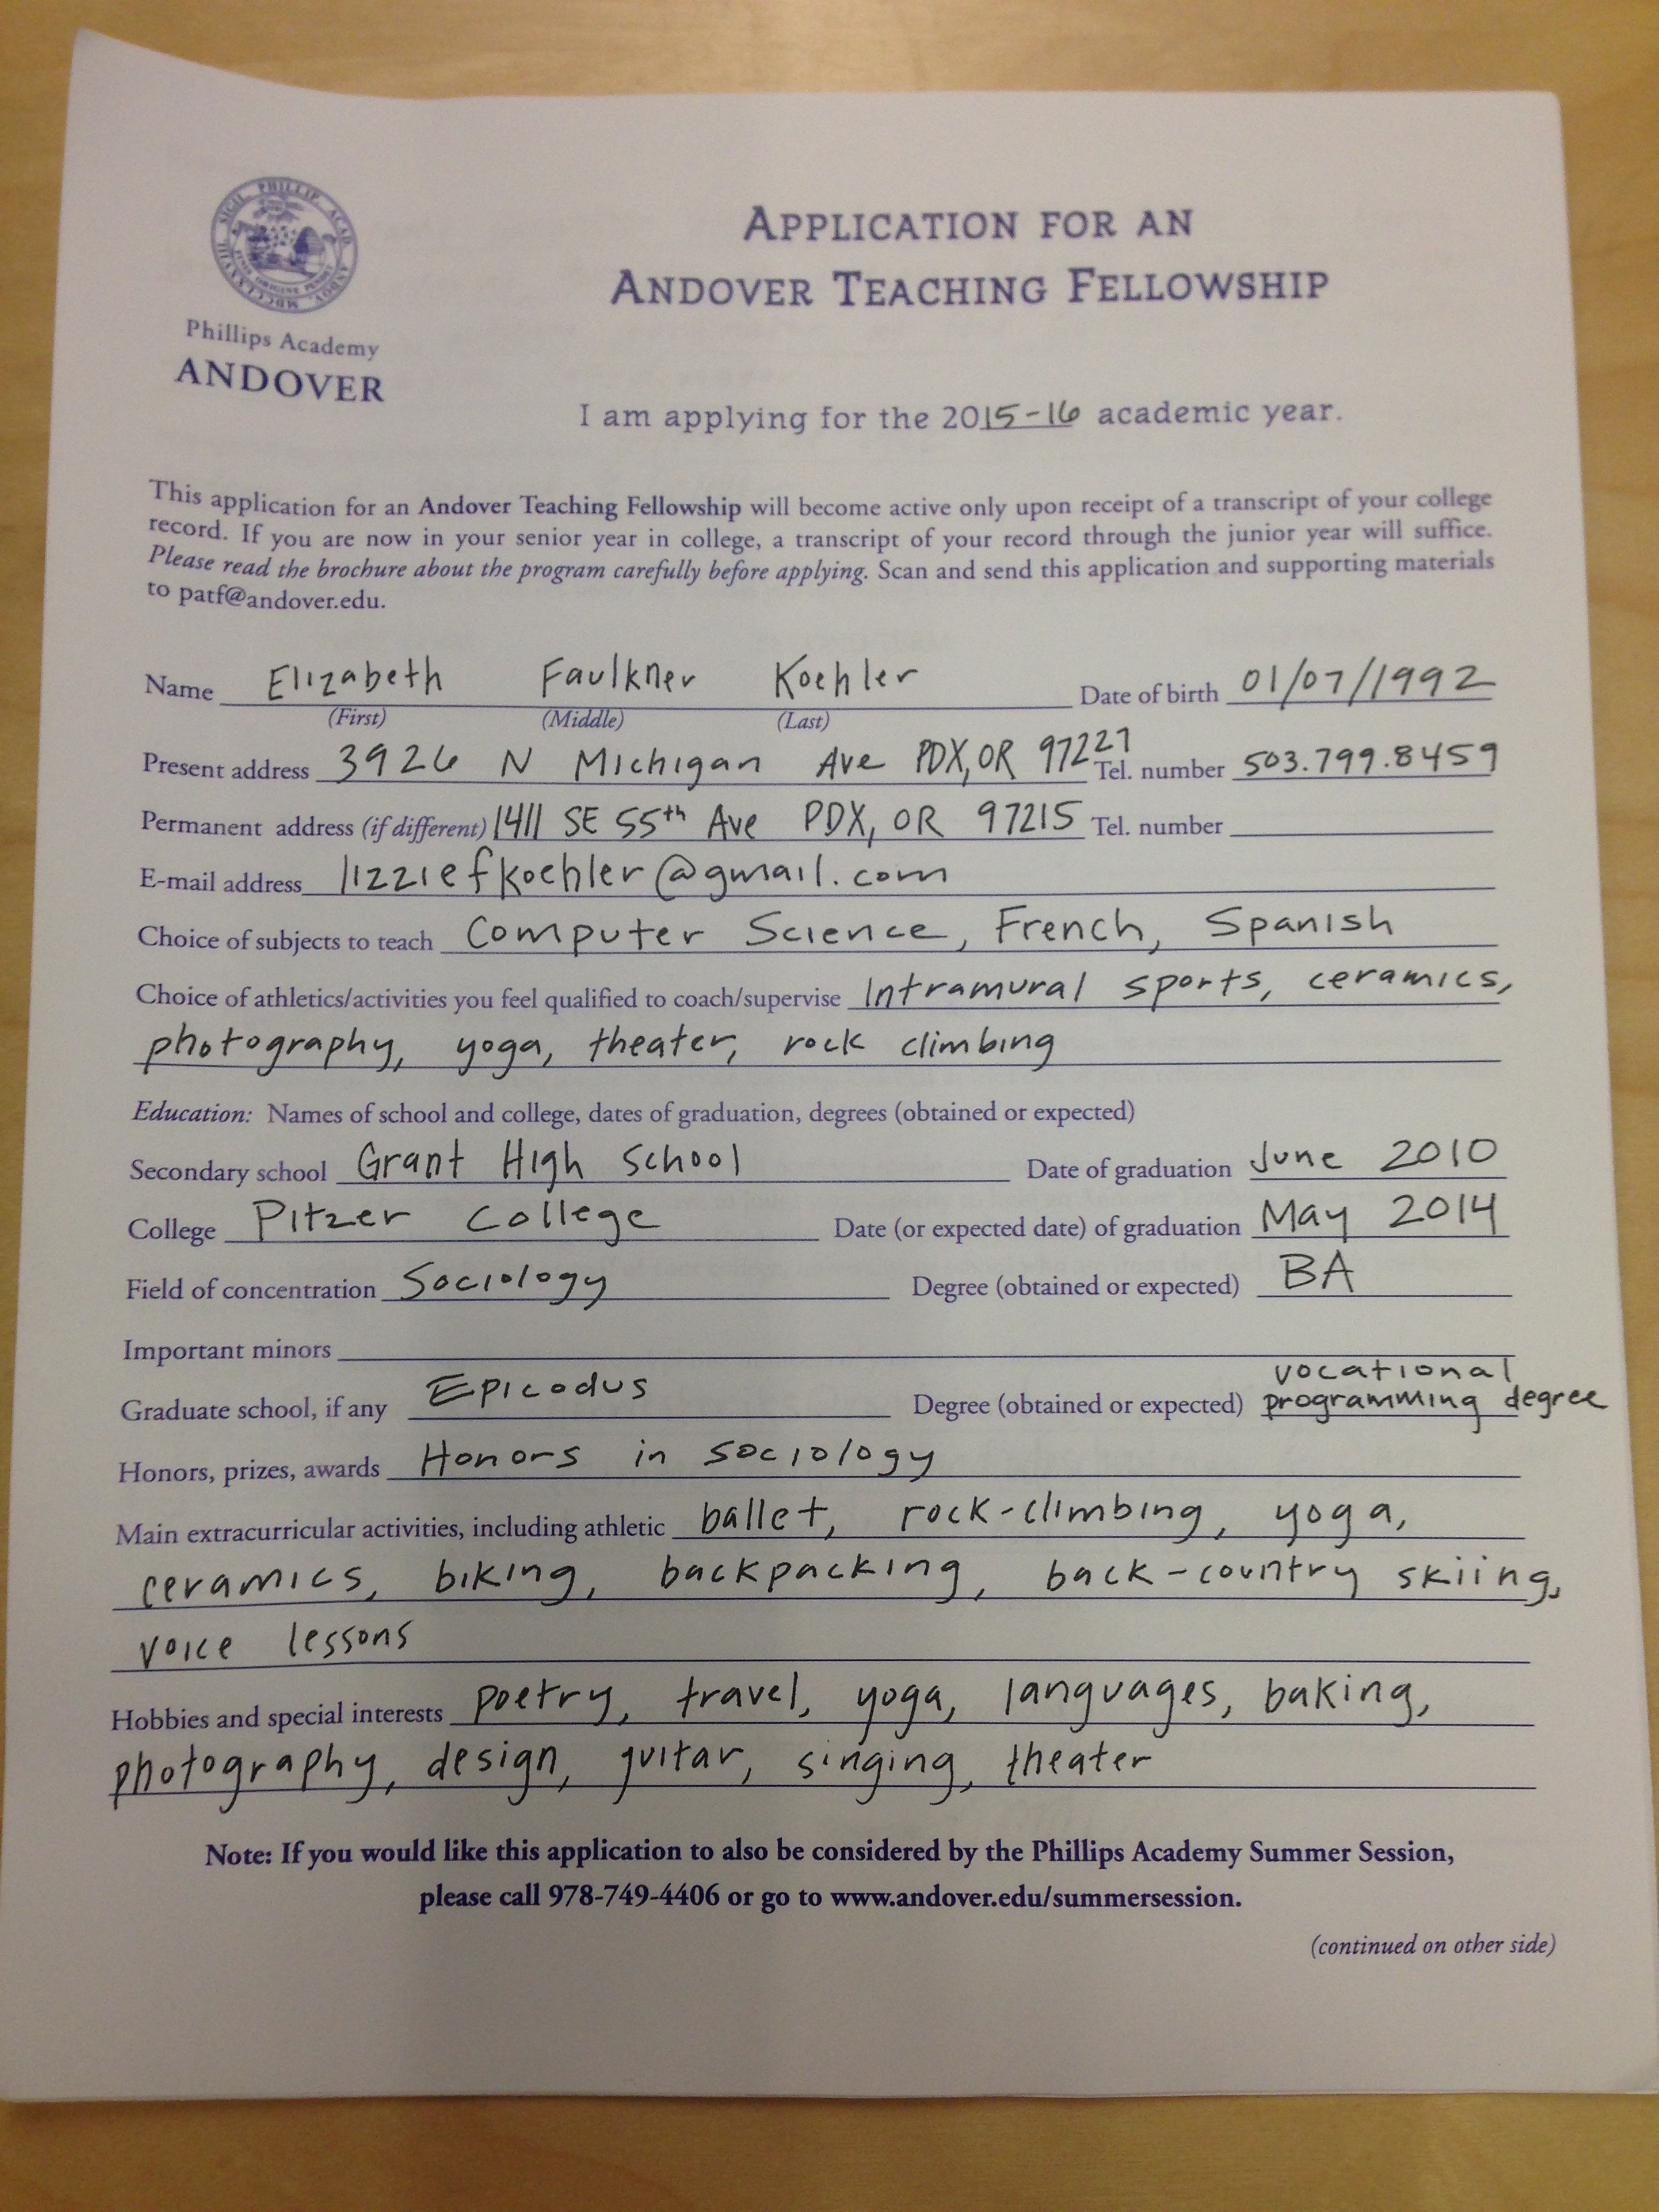 SIGIL. PHILLIP. ACAD. ANDOV. MDCCLXXVIII
Phillips Academy
ANDOVER
APPLICATION FOR AN
ANDOVER TEACHING FELLOWSHIP
I am applying for the 2015-16 academic year.
This application for an Andover Teaching Fellowship will become active only upon receipt of a transcript of your college
record. If you are now in your senior year in college, a transcript of your record through the junior year will suffice.
Please read the brochure about the program carefully before applying. Scan and send this application and supporting materials
to patf@andover.edu.
Name Elizabeth Faulkner Koehler Date of birth 01/07/1992
(First) (Middle) (Last)
Present address 3926 N Michigan Ave PDX, OR 97227 Tel. number 503.799.8459
Permanent address (if different) 1411 SE 55th Ave PDX, OR 97215 Tel. number
E-mail address lizziefkoehler@gmail.com
Choice of subjects to teach Computer Science, French, Spanish
Choice of athletics/activities you feel qualified to coach/supervise Intramural sports, ceramics,
photography, yoga, theater, rock climbing
Education: Names of school and college, dates of graduation, degrees (obtained or expected)
Secondary school Grant High School Date of graduation June 2010
College Pitzer College Date (or expected date) of graduation May 2014
Field of concentration Sociology Degree (obtained or expected) BA
Important minors
Graduate school, if any Epicodus Degree (obtained or expected) vocational
programming degree
Honors, prizes, awards Honors in sociology
Main extracurricular activities, including athletic ballet, rock-climbing, yoga,
ceramics, biking, backpacking, back-country skiing,
voice lessons
Hobbies and special interests poetry, travel, yoga, languages, baking,
photography, design, guitar, singing, theater
Note: If you would like this application to also be considered by the Phillips Academy Summer Session,
please call 978-749-4406 or go to www.andover.edu/summersession.
(continued on other side)